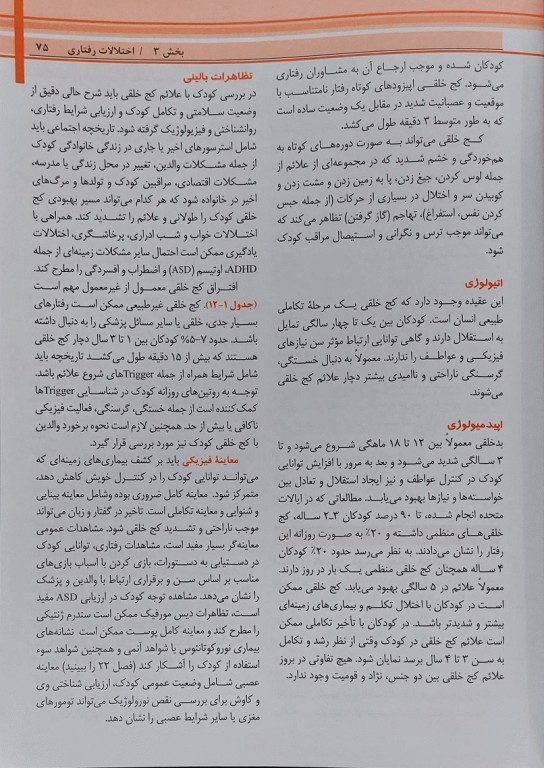 بخش ۳ / اختلالات رفتاری ۷۵
کودکان شده و موجب ارجاع آن به مشاوران رفتاری
می‌شود. کج خلقی اپیزودهای کوتاه رفتار نامتناسب با
موقعیت و عصبانیت شدید در مقابل یک وضعیت ساده است
که به طور متوسط ۳ دقیقه طول می‌کشد.
کج خلقی می‌تواند به صورت دوره‌های کوتاه به
هم‌خوردگی و خشم شدید که در مجموعه‌ای از علائم از
جمله لوس کردن، جیغ زدن، پا به زمین زدن و مشت زدن و
کوبیدن سر و اختلال در بسیاری از حرکات (از جمله حبس
کردن نفس، استفراغ)، تهاجم (گاز گرفتن) تظاهر می‌کند که
می‌تواند موجب ترس و نگرانی و استیصال مراقب کودک
شود.
اتیولوژی
این عقیده وجود دارد که کج خلقی یک مرحلۀ تکاملی
طبیعی انسان است. کودکان بین یک تا چهار سالگی تمایل
به استقلال دارند و گاهی توانایی ارتباط مؤثر سن نیازهای
فیزیکی و عواطف را ندارند. معمولاً به دنبال خستگی،
گرسنگی ناراحتی و ناامیدی بیشتر دچار علائم کج خلقی
می‌شوند.
اپیدمیولوژی
بدخلقی معمولاً بین ۱۲ تا ۱۸ ماهگی شروع می‌شود و تا
۳ سالگی شدید می‌شود و بعد به مرور با افزایش توانایی
کودک در کنترل عواطف و نیز ایجاد استقلال و تعادل بین
خواسته‌ها و نیازها بهبود می‌یابد. مطالعاتی که در ایالات
متحده انجام شده، تا ۹۰ درصد کودکان ۳ـ۲ ساله، کج
خلقی‌های منظمی داشته و ۲۰٪ به صورت روزانه این
رفتار را نشان می‌دادند. به نظر می‌رسد حدود ۲۰٪ کودکان
۴ ساله همچنان کج خلقی منظمی یک بار در روز دارند.
معمولاً علائم در ۵ سالگی بهبود می‌یابد. کج خلقی ممکن
است در کودکان با اختلال تکلم و بیماری‌های زمینه‌ای
بیشتر و شدیدتر باشد. در کودکان با تأخیر تکاملی ممکن
است علائم کج خلقی در کودک وقتی از نظر رشد و تکامل
به سن ۳ تا ۴ سال برسد نمایان شود. هیچ تفاوتی در بروز
علائم کج خلقی بین دو جنس، نژاد و قومیت وجود ندارد.
تظاهرات بالینی
در بررسی کودک با علائم کج خلقی باید شرح حالی دقیق از
وضعیت سلامتی و تکامل کودک و ارزیابی شرایط رفتاری،
روانشناختی و فیزیولوژیک گرفته شود. تاریخچه اجتماعی باید
شامل استرسورهای اخیر یا جاری در زندگی خانوادگی کودک
از جمله مشکلات والدین، تغییر در محل زندگی یا مدرسه،
مشکلات اقتصادی، مراقبین کودک و تولدها و مرگ‌های
اخیر در خانواده شود که هر کدام می‌تواند مسیر بهبودی کج
خلقی کودک را طولانی و علائم را تشدید کند. همراهی با
اختلالات خواب و شب ادراری، پرخاشگری، اختلالات
یادگیری ممکن است احتمال سایر مشکلات زمینه‌ای از جمله
ADHD، اوتیسم (ASD) و اضطراب و افسردگی را مطرح کند.
افتراق کج خلقی معمول از غیرمعمول مهم است
(جدول ۱-۱۲). کج خلقی غیرطبیعی ممکن است رفتارهای
بسیار جدی، خلقی یا سایر مسائل پزشکی را به دنبال داشته
باشد. حدود ۷-۵% کودکان بین ۱ تا ۳ سال دچار کج خلقی
هستند که بیش از ۱۵ دقیقه طول می‌کشد تاریخچه باید
شامل شرایط همراه از جمله Triggerهای شروع علائم باشد.
توجه به روتین‌های روزانه کودک در شناسایی Triggerها
کمک‌کننده است از جمله خستگی، گرسنگی، فعالیت فیزیکی
ناکافی یا بیش از حد. همچنین لازم است نحوه برخورد والدین
با کج خلقی کودک نیز مورد بررسی قرار گیرد.
معاینۀ فیزیکی باید بر کشف بیماری‌های زمینه‌ای که
می‌تواند توانایی کودک را در کنترل خویش کاهش دهد،
متمرکز شود. معاینه کامل ضروری بوده وشامل معاینه بینایی
و شنوایی و معاینه تکاملی است. تاخیر در گفتار و زبان می‌تواند
موجب ناراحتی و تشدید کج خلقی شود. مشاهدات عمومی
معاینه‌گر بسیار مفید است، مشاهدات رفتاری، توانایی کودک
در دستیابی به دستورات، بازی کردن با اسباب بازی‌های
مناسب بر اساس سن و برقراری ارتباط با والدین و پزشک
را نشان می‌دهد. مشاهده توجه کودک در ارزیابی ASD مفید
است، تظاهرات دیس مورفیک ممکن است سندرم ژنتیکی
را مطرح کند و معاینه کامل پوست ممکن است نشانه‌های
بیماری نوروکوتانئوس یا شواهد آتمی و همچنین شواهد سوء
استفاده از کودک را آشکار کند (فصل ۲۲ را ببینید) معاینه
عصبی شامل وضعیت عمومی کودک، ارزیابی شناختی وی
و کاوش برای بررسی نقص نورولوژیک می‌تواند تومورهای
مغزی یا سایر شرایط عصبی را نشان دهد.